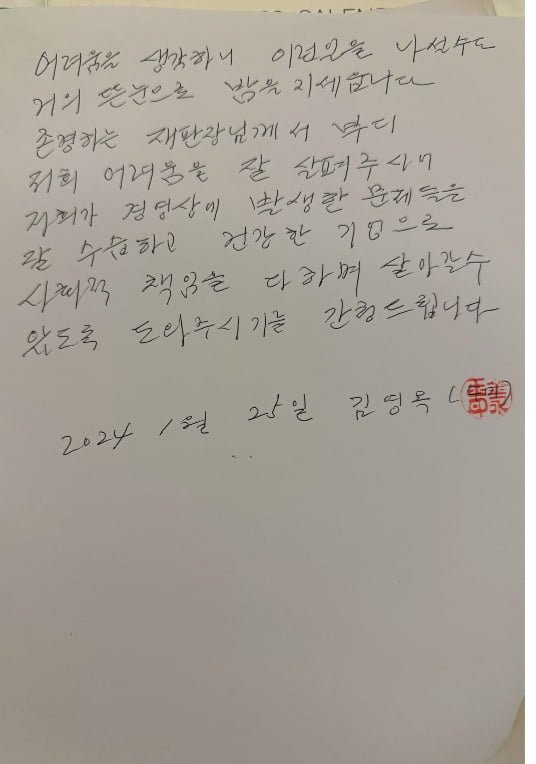 어려움을 생각하니 이런모를 나선수도
거의 뜬눈으로 밤을 지세웁니다
존경하는 재판장님께서 부디
저희 어려움을 잘 살펴주시어
저희가 경영상에 발생한 문제들을
잘 수습하고 건강한 기업으로
사회적 책임을 다하며 살아갈수
있도록 도와주시기를 간청드립니다
2024 1월 25일 김영목